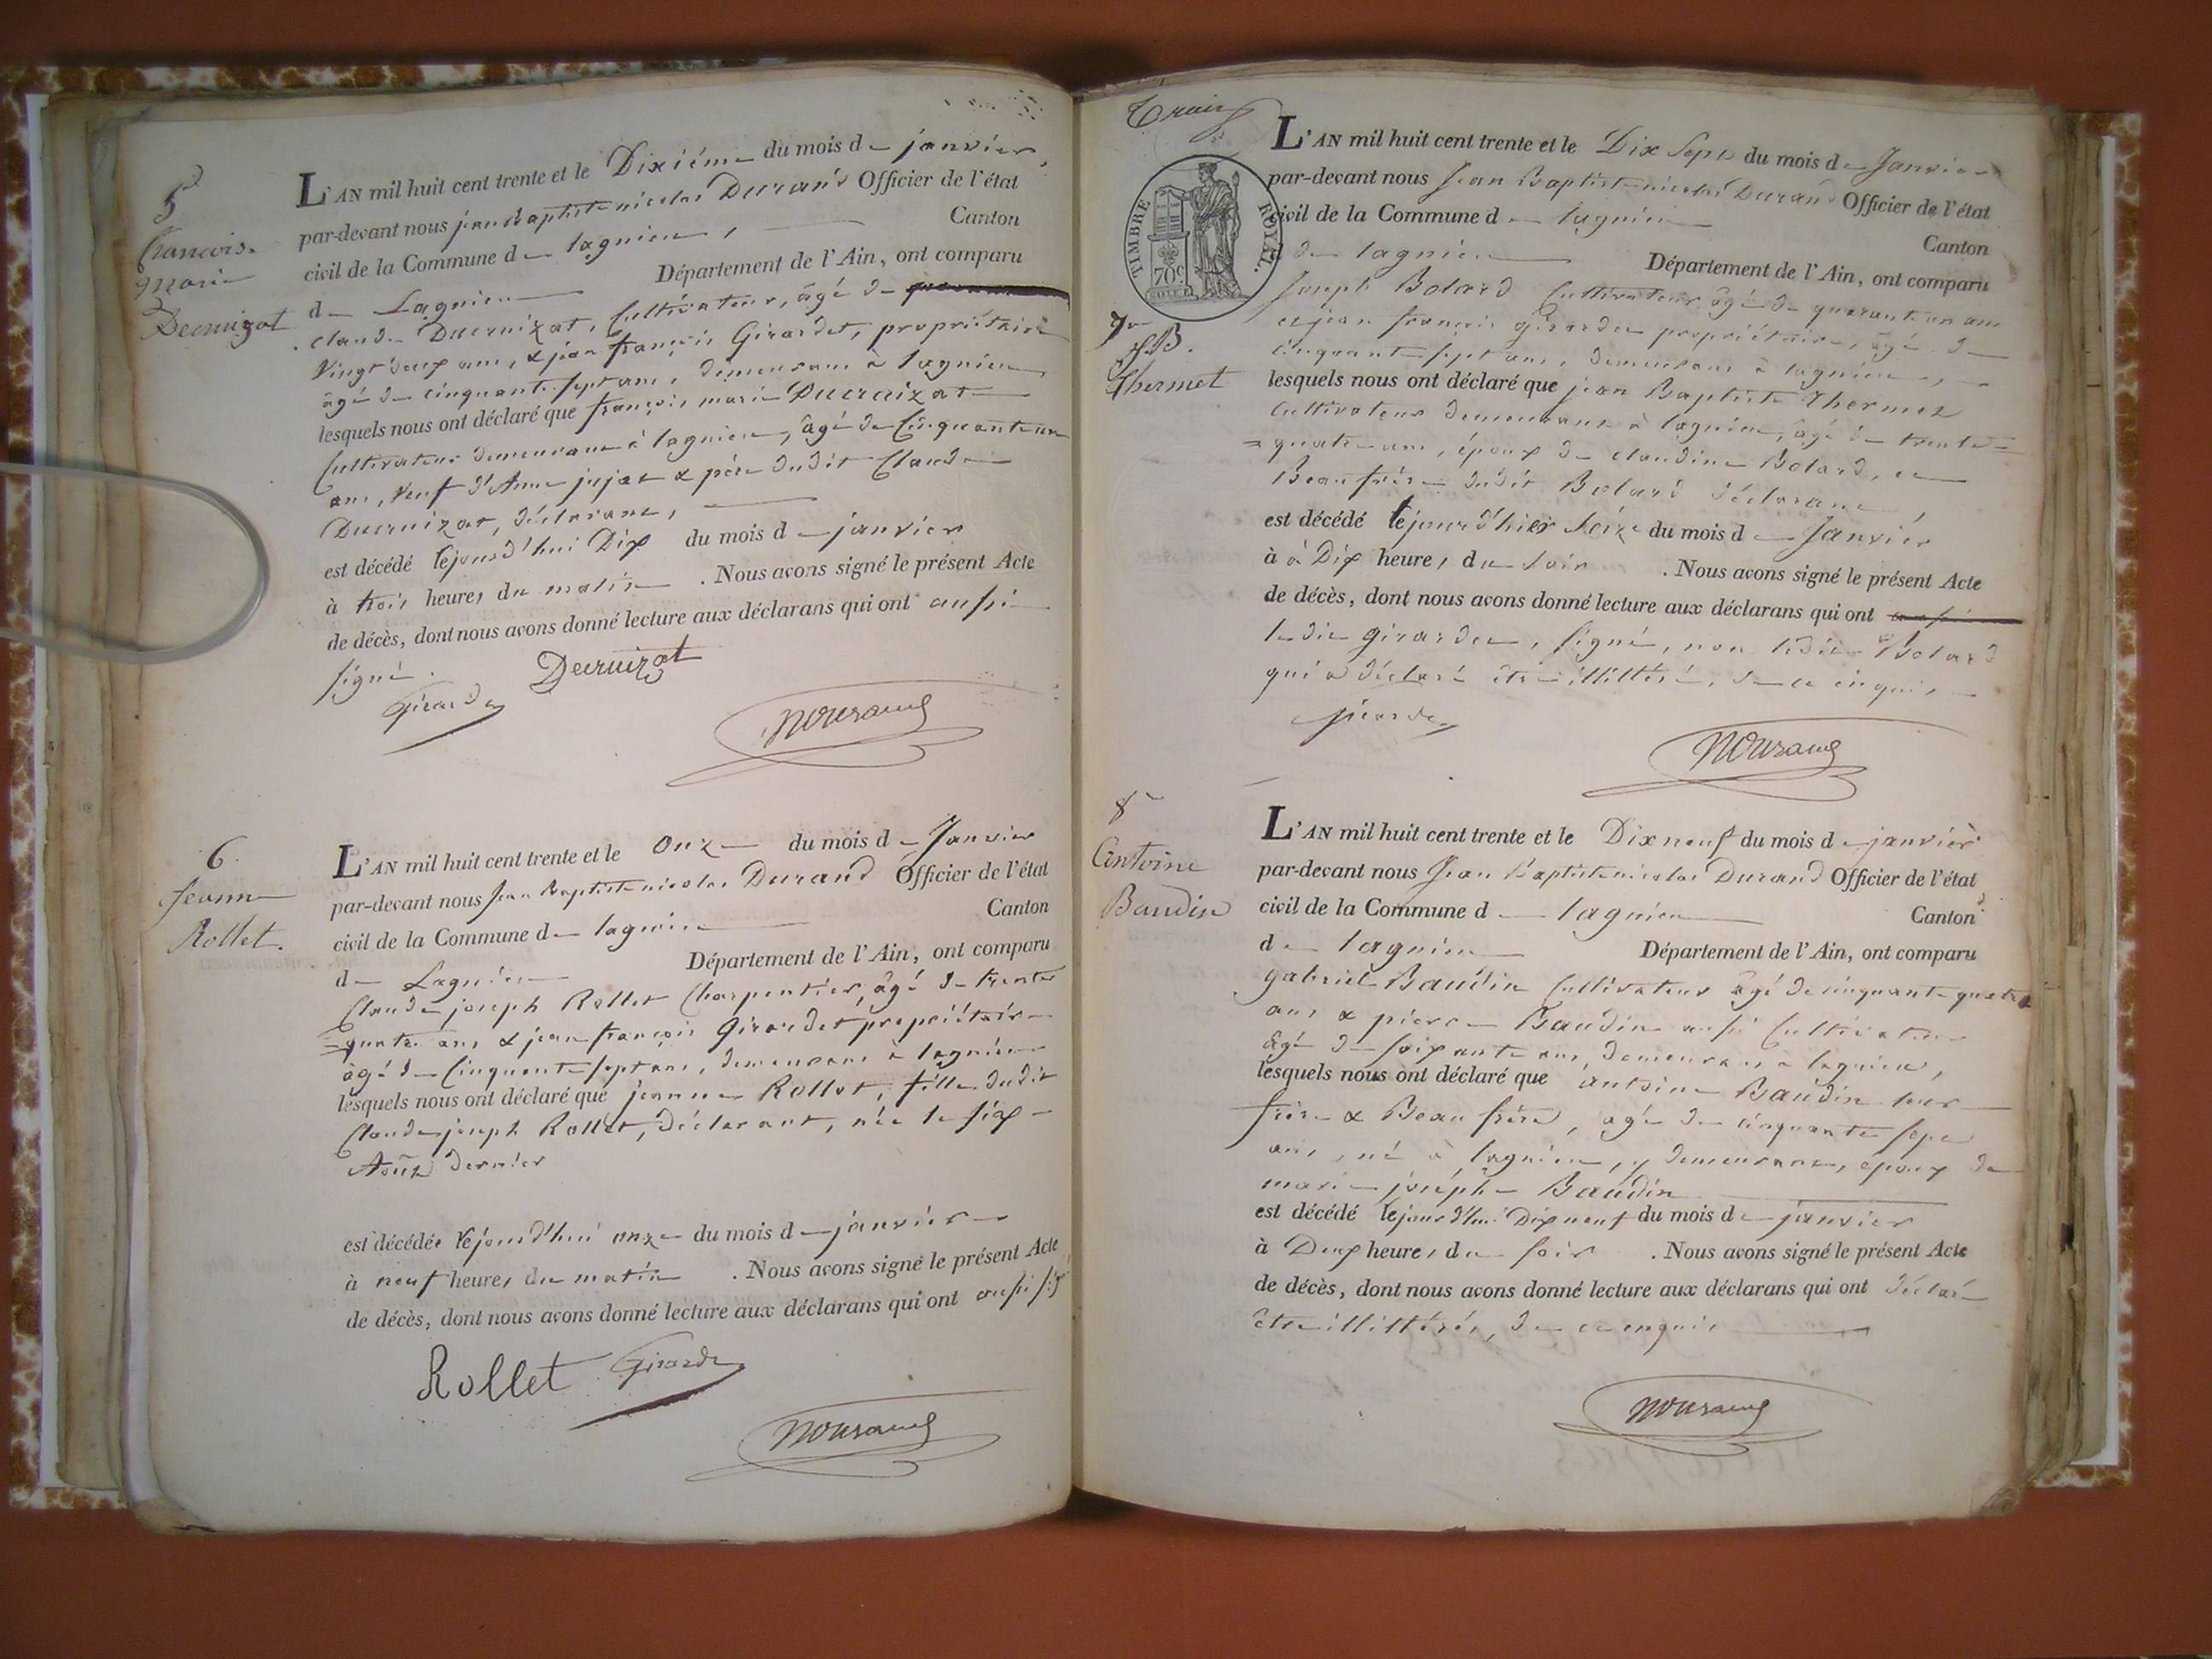 5
françois
marie
Decruizat
L'AN mil huit cent trente et le Dixiéme du mois de janvier,
par-devant nous jean Baptiste nicolas Durand Officier de l'état
civil de la Commune de lagnieu, Canton
de Lagnieu Département de l'Ain, ont comparu
claude Ducruizat, Cultivateur, âgé de
Vingt deux ans, & jean françois Girardet, propriétaire
âgé de cinquante sept ans, demeurans à lagnieu
lesquels nous ont déclaré que françois marie Ducruizat
Cultivateur demeurant à lagnieu, âgé de Cinquante un
ans, Veuf d'Anne jujat & père dudit Claude
Ducruizat, déclarant,
est décédé cejourd'hui Dix du mois de janvier
à trois heures du matin . Nous avons signé le présent Acte
de décès, dont nous avons donné lecture aux déclarans qui ont aussi
signé.
Decruizat
Girardet
NDurand
6.
Jeanne
Rollet.
L'AN mil huit cent trente et le Onze du mois de Janvier
par-devant nous Jean Baptiste nicolas Durand Officier de l'état
civil de la Commune de lagnieu Canton
de Lagnieu Département de l'Ain, ont comparu
Claude joseph Rollet Charpentier, âgé de trente
=quatre ans & jean françois Girardet propriétaire
âgé de Cinquante sept ans, demeurans à lagnieu
lesquels nous ont déclaré que jeanne Rollet, fille dudit
Claude joseph Rollet, déclarant, née le six
Août dernier
est décédée cejourd'hui onze du mois de janvier
à neuf heures du matin . Nous avons signé le présent Acte
de décès, dont nous avons donné lecture aux déclarans qui ont aussi sig
Rollet Girardet
NDurand
TIMBRE ROYAL.
70c
7
J.B.
Thermet
L'AN mil huit cent trente et le Dix Sept du mois de Janvier
par-devant nous Jean Baptiste nicolas Durand Officier de l'état
civil de la Commune de lagnieu
Canton
de lagnieu Département de l'Ain, ont comparu
Joseph Bolard Cultivateur âgé de quarante un ans
et jean françois girardet propriétaire, âgé de
cinquante sept ans, demeurans à lagnieu,
lesquels nous ont déclaré que jean Baptiste Thermet
Cultivateur demeurant à lagnieu, âgé de trente=
=quatre ans, époux de claudine Bolard, et
Beau frère dudit Bolard déclarant,
est décédé le jour d'hier Seize du mois de Janvier
à à Dix heures du soir . Nous avons signé le présent Acte
de décès, dont nous avons donné lecture aux déclarans qui ont aussi
le dit girardet, signé, non ledit Bolard
qui a déclaré être illittéré, de ce enquis
girardet
NDurand
8
Antoine
Baudin
L'AN mil huit cent trente et le Dix neuf du mois de janvier
par-devant nous Jean Baptiste nicolas Durand Officier de l'état
civil de la Commune de lagnieu Canton
de lagnieu Département de l'Ain, ont comparu
gabriel Baudin Cultivateur âgé de cinquante quatre
ans & pierre Baudin aussi Cultivateur
âgé de soixante ans, demeurans à lagnieu,
lesquels nous ont déclaré que antoine Baudin leur
frère & Beau frère, agé de cinquante sept
ans, né à lagnieu, y demeurant, époux de
marie josephe Baudin
est décédé cejourd'hui Dix neuf du mois de janvier
à Deux heures du soir . Nous avons signé le présent Acte
de décès, dont nous avons donné lecture aux déclarans qui ont déclaré
être illittérés, de ce enquis
NDurand